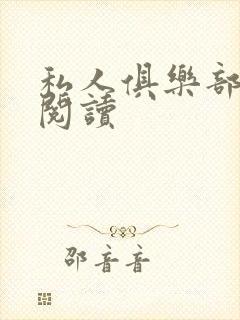 私人俱樂部
閱讀
邵音音